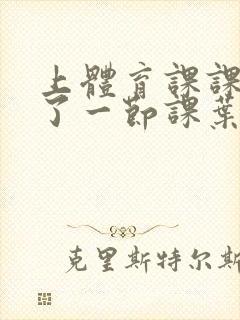 上體育課課
了一節課葉
克里斯特尔斯